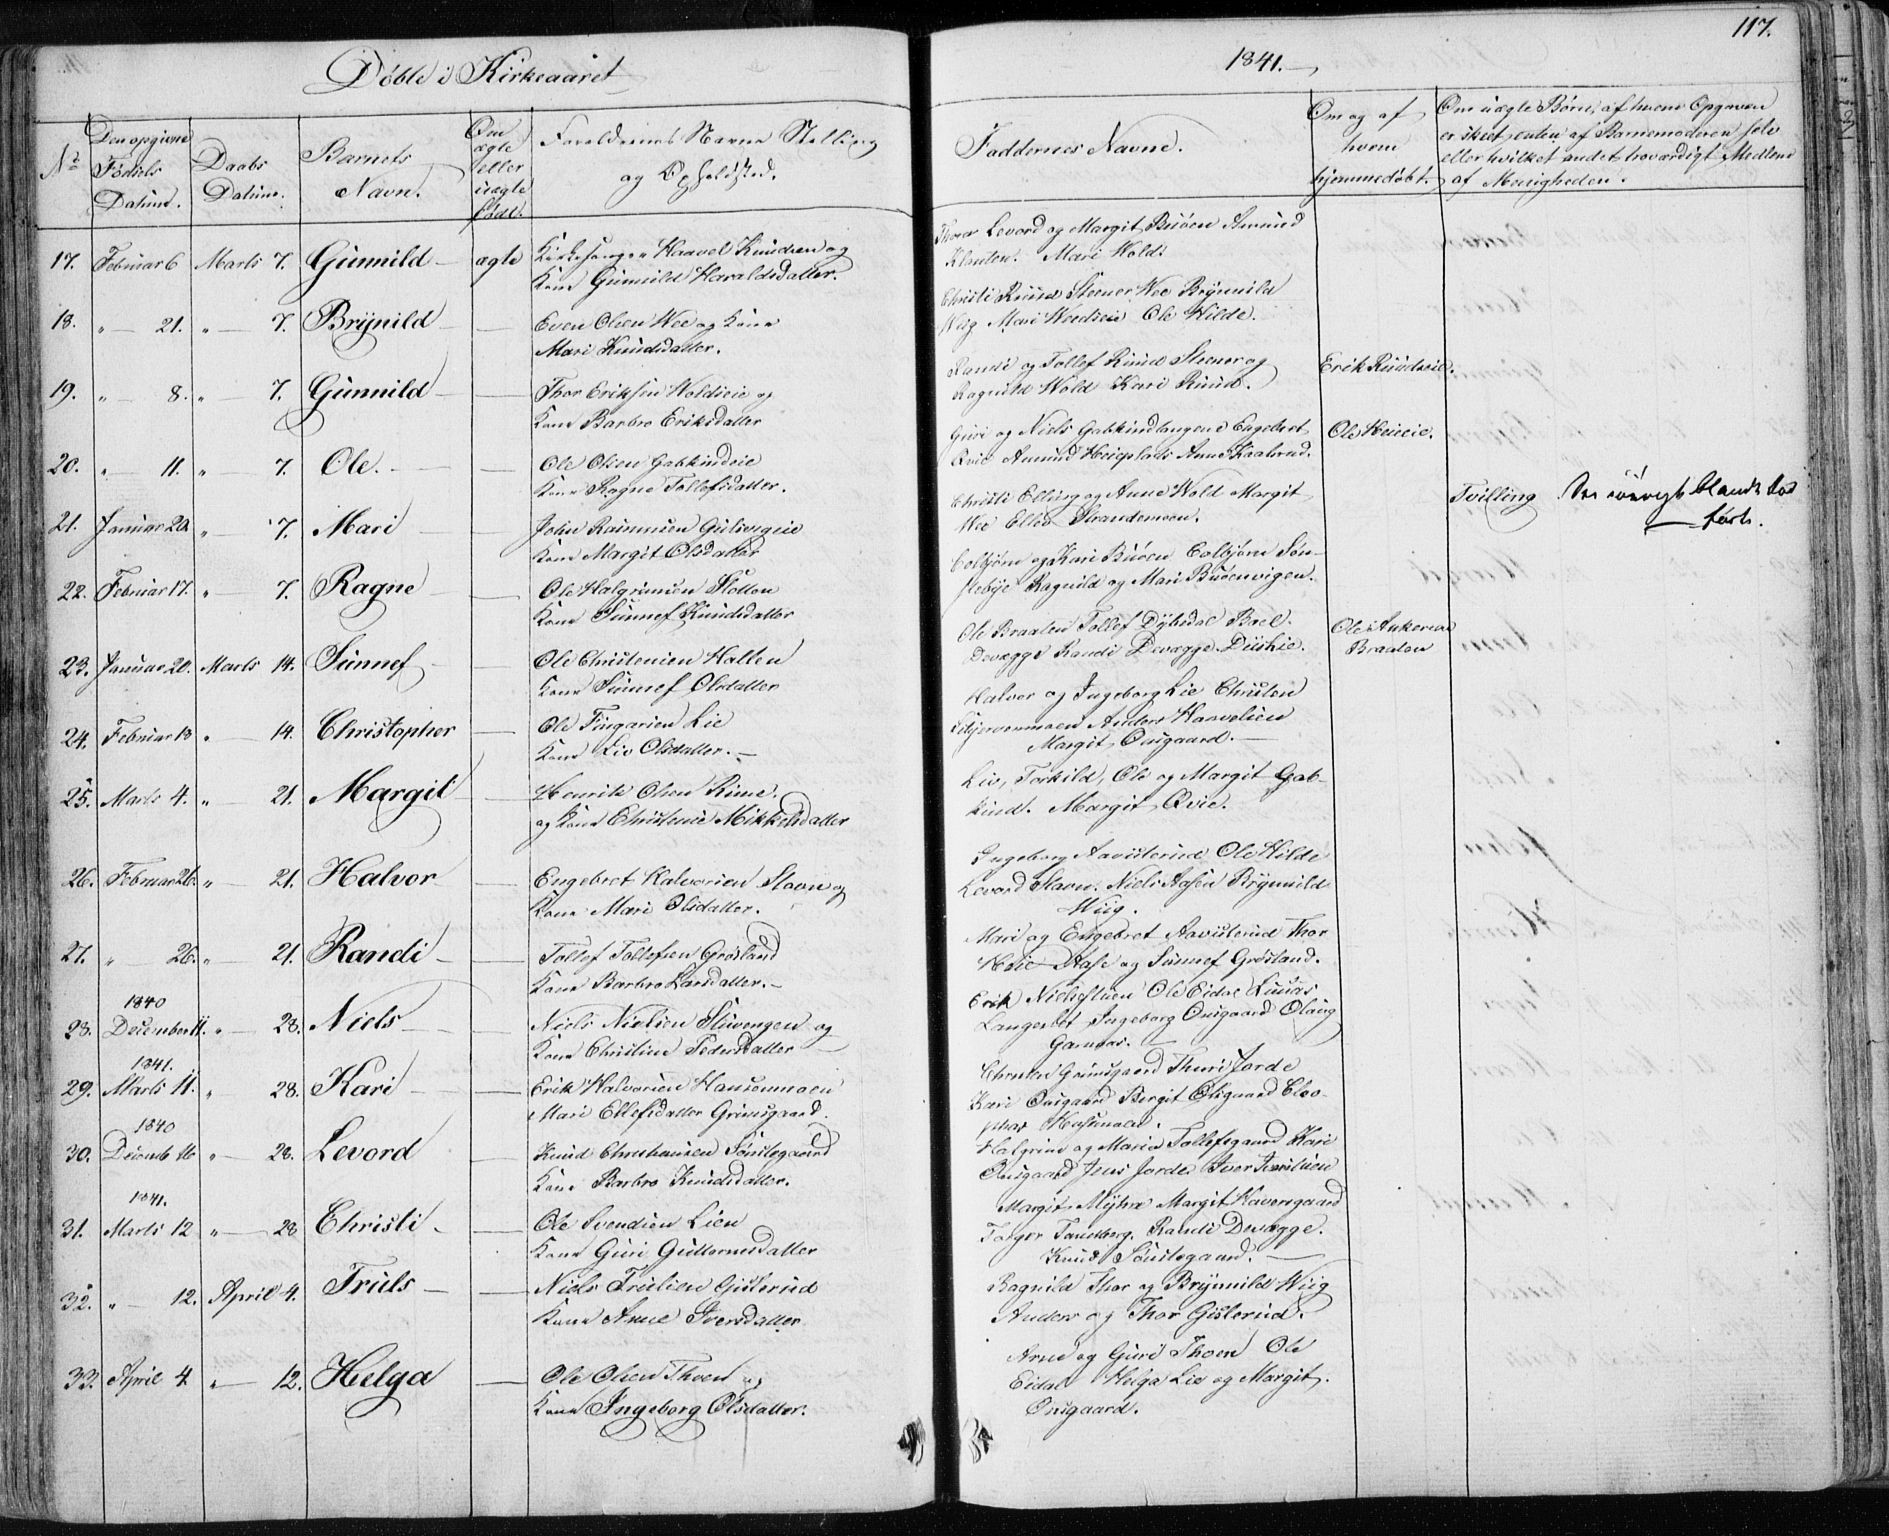 117.
Døbte i Kirkeaaret
1841.
No
Den opgivne Fødsels Datum.
Daabs Datum.
Barnets Navn.
Om ægte eller uægte født.
Forældrenes Navne Stilling og Opholdsted.
Faddernes Navne.
Om og af hvem hjemmedøbt.
Om uægte Børn, af hvem Opgaven er skeet, enten af Barnemoderen selv eller hvilket andet troværdigt Medlem af Menigheden.
17. Februar 6 Marts 7. Gunnild ægte Kirkesanger Haavel Knudsen og
Kone Gunnild Haraldsdatter.
Levord og Margit Buøen Amund
Mari Wold.
18. " 21. " 7. Brynild Even Olsen Wee og Kone
Mari Knudsdatter.
Christi Ruud Steener Wee Brynnild
Wiig Mari Ole Hilde.
19. " 8. " 7. Gunnild Thor Eriksen Woldseie og
Kone Barbro Eriksdatter
Randi og Tollef Ruud Steener og
Ragnild Wold Kari Ruud.
Erik Ruudseie.
20. " 11. " 7. Ole. Ole Olsen Gabkindeie
Kone Ragne Tollefsdatter.
Guri og Niels Engebret
Qvie Amund Anne
Ole
21. Januar 20. " 7. Mari John Rasmusen Gulsvigeie
Kone Margit Olsdatter
Christi Elling og Anne Wold Margit
Wee Ellef Strandemoen.
Tvilling
22. Februar 17. " 7. Ragne Ole Halgrimsen Slotten
Kone Sünnef Knudsdatter
Colbjørn og Kari Buøen Colbjørn
Ragnild og Mari Buøenvigen.
23. Januar 20. Marts 14. Sünnef Ole Christensen Hallen
Kone Sünnef Olsdatter
Ole Braaten Tollef
Devægge Randi Devægge
Ole
Braaten
24. Februar 13 " 14. Christopher Ole Fingarsen Lie
Kone Liv Olsdatter.
Halvor og Ingeborg Lie Christen
Anders Haavelsen
Margit Onsgaard.
25. Marts 4. " 21. Margit Henrik Olsen Rime.
og Kone Christense Mikkelsdatter
Liv, Torkild, Ole og Margit Gab-
kind. Margit Qvie.
26. Februar 26. " 21. Halvor Engebret Halvorsen Stavn og
Kone Mari Olsdatter.
Ingeborg Aavesterud Ole Hilde
Levord Stavn. Niels Aasen Brynnild
Wiig.
27. " 26. " 21. Randi Tollef Tollefsen Grøsland
Kone Barbro Larsdatter.
Mari og Engebret Aavesterud Thor
Aase og Sünnef Grøsland.
1840
28. December 11. " 28. Niels Niels Nielsen Stuvengen og
Kone Christine Pedersdatter
Erik Ole Eidal
Ingeborg Onsgaard Olaug
Garnaas.
1841.
29. Marts 11. " 28. Kari Erik Halvorsen Hansemoen
Mari Ellefsdatter Grimsgaard.
Christen Grimsgaard Thuri Jorde
Kari Onsgaard Bergit Onsgaard
1840
30. Decemb 16 " 28. Levord Knud Christiansen Sønstegaard
Kone Barbro Knudsdatter.
Halgrim og Maria Tollefsgaard Kari
Onsgaard Jens Jorde Iver
1841.
31. Marts 12 " 28 Christi Ole Svendsen Lien
Kone Guri Guttormsdatter
Margit Myhre Margit Haversgaard
Randi Devægge.
Knud Sønstegaard.
32. " 12. April 4. Truls Niels Trulsen Gislerud
Kone Anne Iversdatter
Ragnild Thor og Brynnild Wiig
Anders og Thor Gislerud.
33. April 4. " 12. Helga Ole Olsen Thoen og
Kone Ingeborg Olsdatter.
Arne og Guri Thoen Ole
Eidal Helga Lie og Margit
Onsgaard.